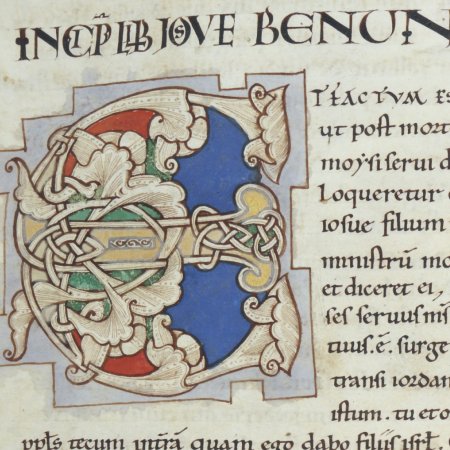 INCIP LIB IOSUE BENUN
ET FACTVM ES
ut post mort
moysi serui d
loqueretur
iosue filium
ministrū mo
et diceret ei,
ses seruus m̅s
tuus.ē. surge
transi iordan
istum. tu et o
pp̅ls tecum intrā quam ego dabo filiis isrl̅.